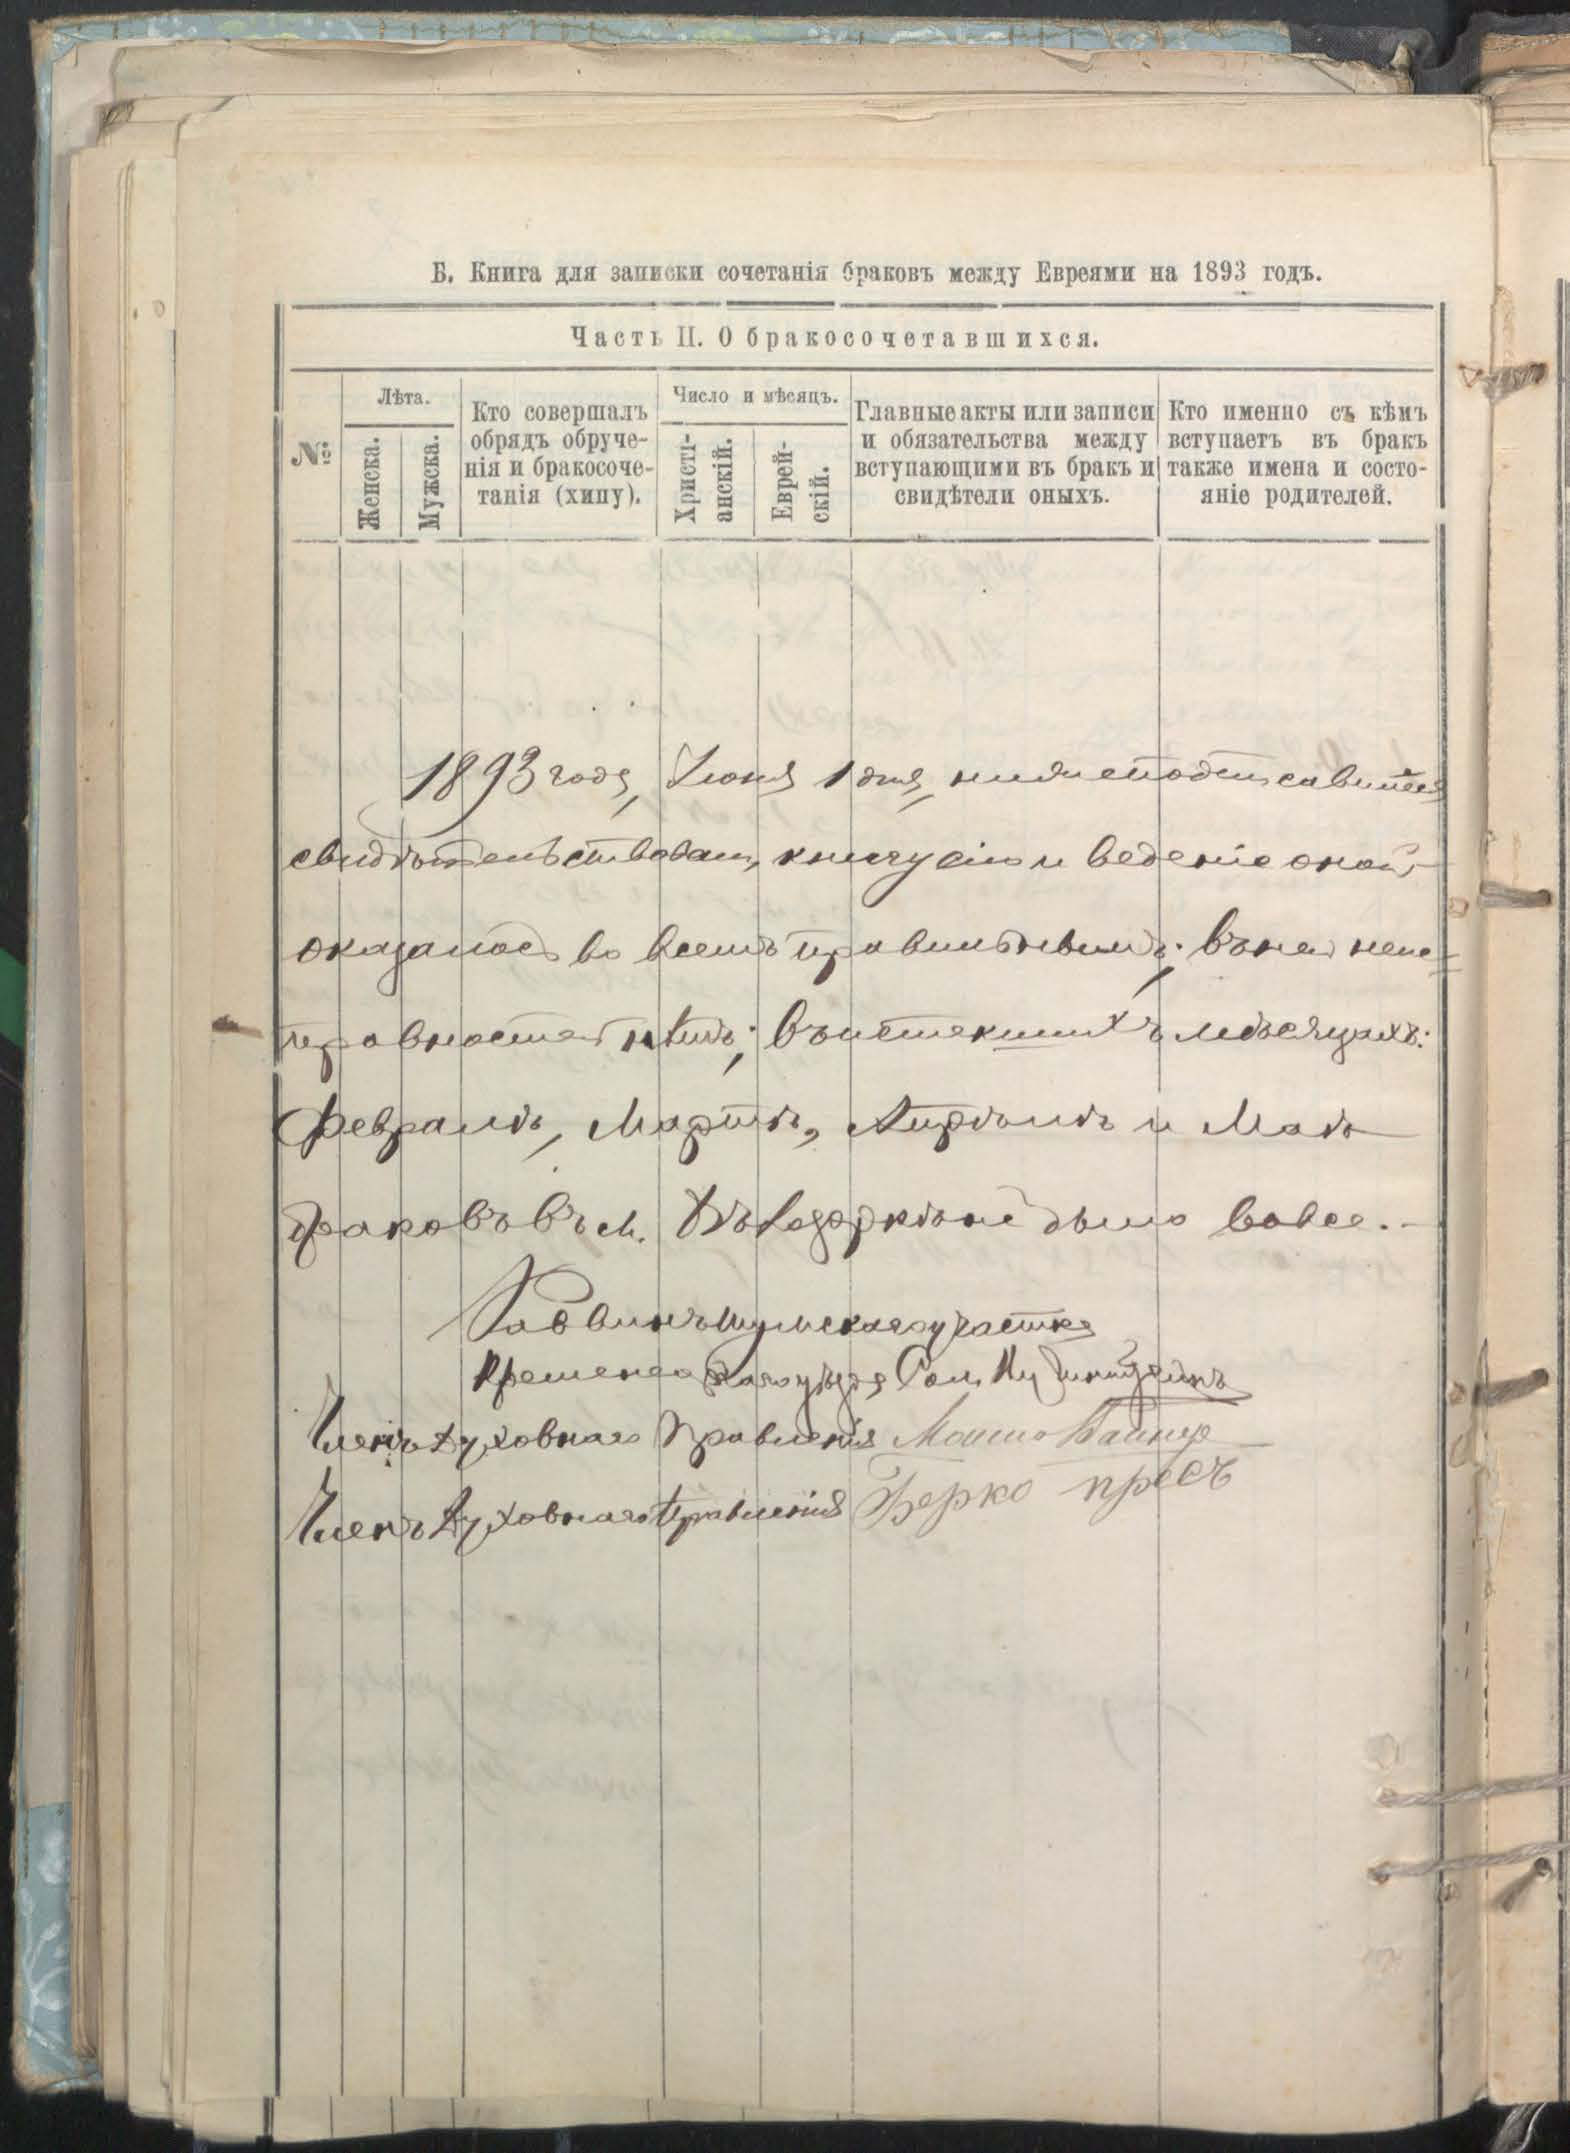 Б. Книга для записки сочетанія браковъ между Евреями на 1893 годъ.
Часть II. О бракосочетавшихся.
№
Лѣта.
Женска.
Мужска.
Кто совершалъ
обрядъ обруче-
нія и бракосоче-
танія (хипу).
Число и мѣсяцъ.
Христі-
анскій.
Еврей-
скій.
Главные акты или записи
и обязательства между
вступающими въ бракъ и
свидѣтели оныхъ.
Кто именно съ кѣмъ
вступаетъ въ бракъ
также имена и состо-
яніе родителей.
1893 года, Іюня 1 дня, нижеподписавшійся
свидѣтельствовалъ книгу сію и веденіе оной
оказалось во всемъ правильнымъ; въ ней неис-
правностей нѣтъ; въ истекшихъ мѣсяцахъ:
Февралѣ, Мартѣ, Апрѣлѣ и Маѣ
браковъ въ м. не было вовсе.-
Раввинъ Шумскаго участка
Кременецкаго уѣзда
Членъ Духовнаго Правленія Мошко
Членъ Духовнаго Правленія Берко пресъ